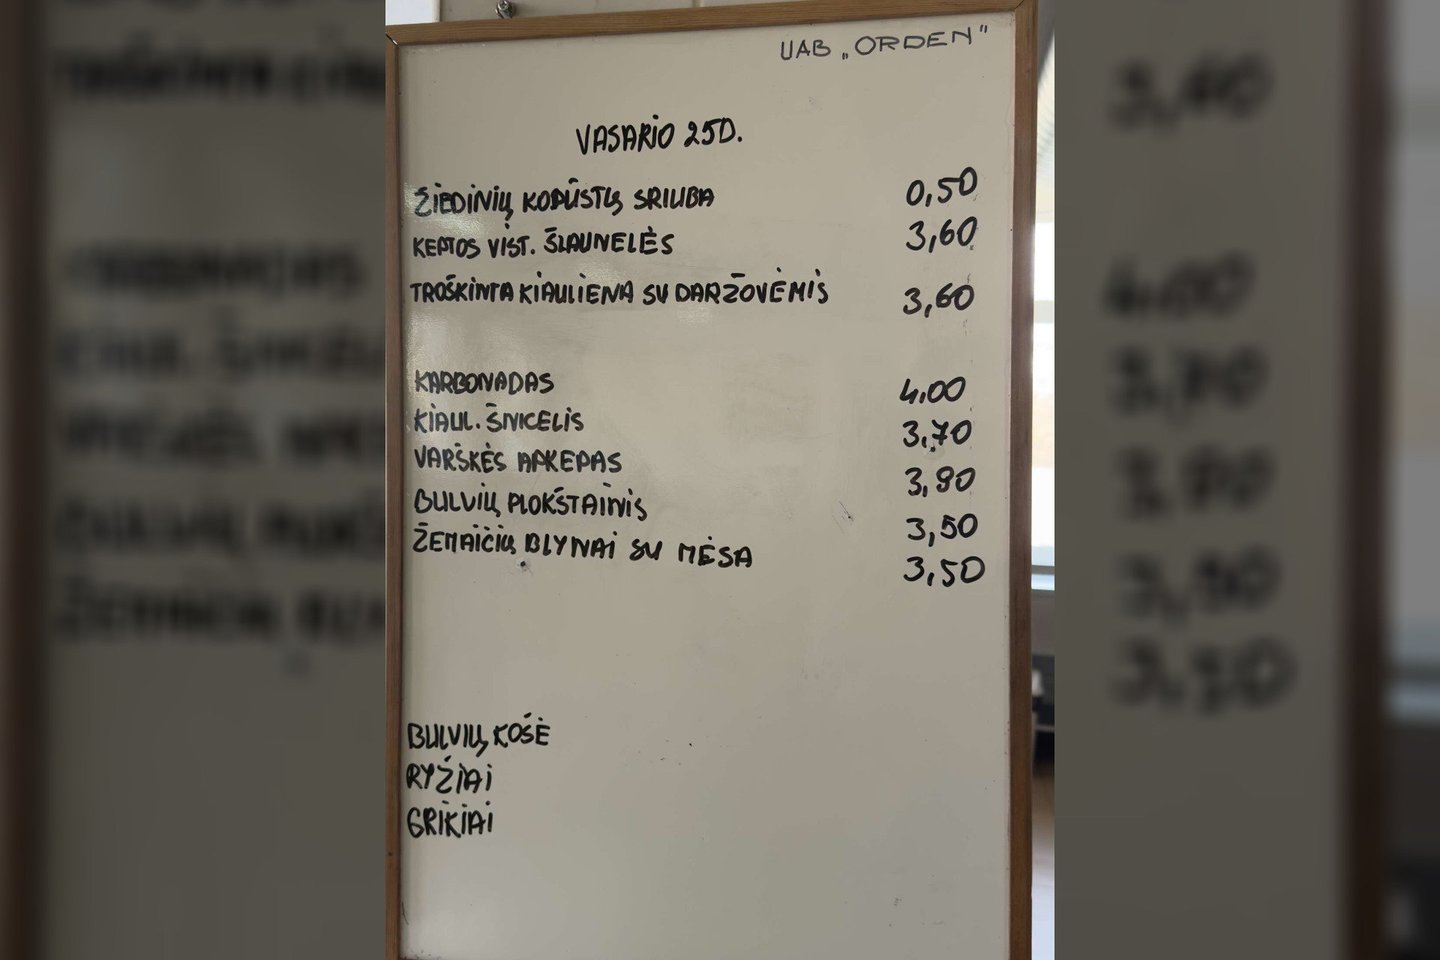 UAB „ORDEN"
VASARIO 25D.
ŽIEDINIŲ KOPŪSTŲ SRIUBA 0,50
KEPTOS VIŠT. ŠLAUNELĖS 3,60
TROŠKINTA KIAULIENA SU DARŽOVĖMIS 3,60
KARBONADAS 4.00
KIAUL. ŠNICELIS 3,70
VARŠKĖS APKEPAS 3,80
BULVIŲ PLOKŠTAINIS 3,50
ŽEMAIČIŲ BLYNAI SU MĖSA 3,50
BULVIŲ KOŠĖ
RYŽIAI
GRIKIAI